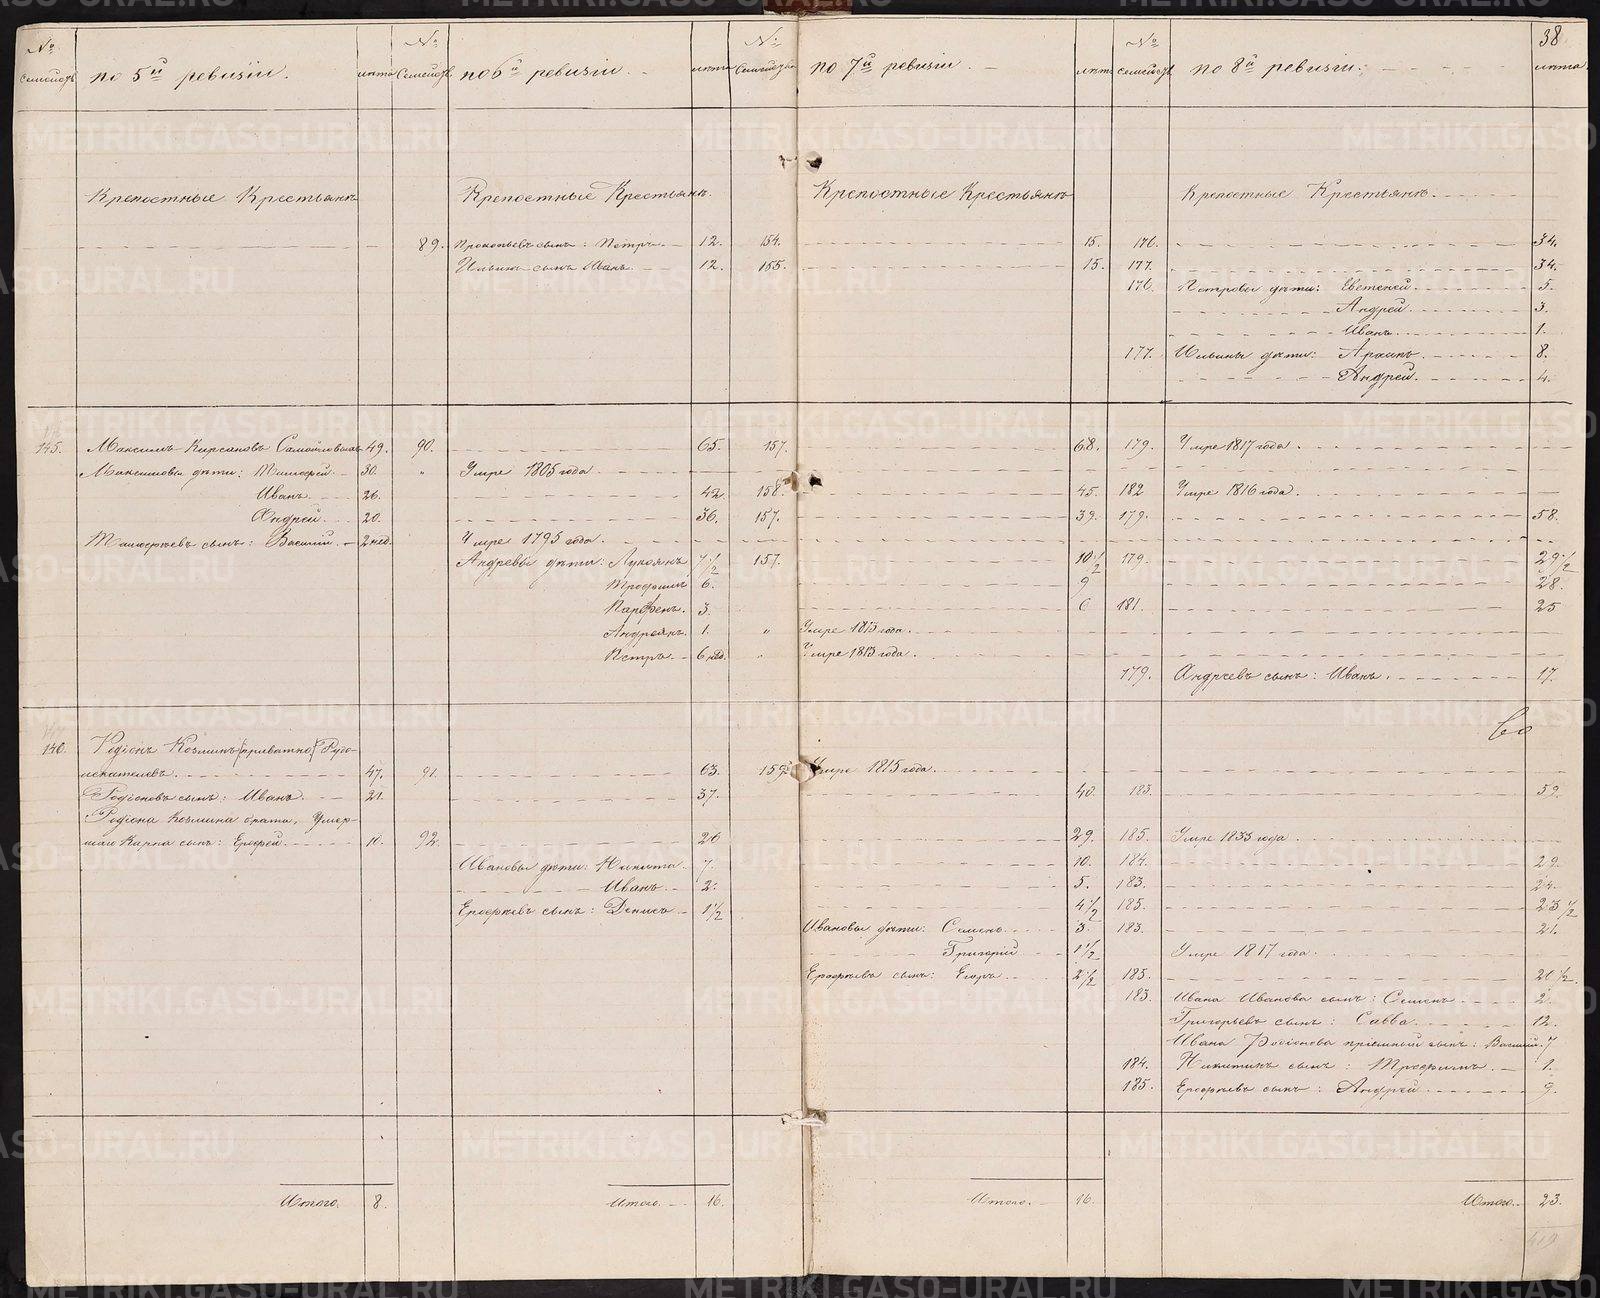 38
№ семействъ по 5й ревизіи. лѣта № семействъ по 6й ревизіи. лѣта № семействъ по 7й ревизіи лѣта № семействъ по 8й ревизіи: лѣта.
Крепостные Крестьянъ Крепостные Крестьянъ. Крепостные Крестьянъ Крепостные Крестьянъ.
89. Прокопьевъ сынъ: Петръ. 12. 154. 15. 176. 34.
Ильинъ сынъ Иванъ. 12. 155. 15. 177. 34.
176. Петровы дѣти: Евстегней. 5.
Андрей. 3.
Иванъ. 1.
177. Ильины дѣти: Архипъ. 8.
Андрей. 4.
145. Максимъ Кирсановъ Самойловыхъ 49. 90. 65. 157. 68. 179. Умре 1817 года.
Максимовы дѣти: Тимофей. 30. " Умре 1805 года
Иванъ. 26. 42. 158. 45. 182 Умре 1816 года.
Андрей. 20. 36. 157. 39. 179. 58.
Тимофеевъ сынъ: Василій. 2 нед. Умре 1795 года.
Андревы дѣти: Лукоянъ 7 1/2 157. 10 1/2 179. 29 1/2
Трофимъ 6. 9 28.
Парфенъ. 3. 6 181. 25
Андреянъ. 1. " Умре 1813 года.
Петръ. 6 нед. " Умре 1813 года.
179. Андреевъ сынъ: Иванъ. 17.
Со
146. Родіонъ Козминъ (приватно) Рудо-
искателевъ. 47. 91. 63. 159. Умре 1815 года.
Родіоновъ сынъ: Иванъ. 21. 37. 40. 183. 59.
Родіона Козмина брата, Умер-
шаго Карпа сынъ: Ерофей. 10. 92. 26 29. 185. Умре 1833 года
Ивановы дѣти: Никита. 7. 10. 184. 29.
Иванъ. 2. 5. 183. 24.
Ерофеевъ сынъ: Денисъ 1 1/2 4 1/2 185. 23 1/2
Ивановы дѣти: Семенъ. 3. 183. 21.
Григорій 1 1/2 Умре 1817 года.
Ерофеевъ сынъ: Егоръ. 2 1/2 185. 20 1/2.
183. Ивана Иванова сынъ: Семенъ. 2.
Григорьевъ сынъ: Савва. 12.
Ивана Родіонова пріемный сынъ: Василій. 7
184. Никитинъ сынъ: Трофимъ. 1.
185. Ерофеевъ сынъ: Андрей. 9.
Итого. 8. Итого. 16. Итого. 16. Итого. 23.
METRIKI.GASO-URAL.RU